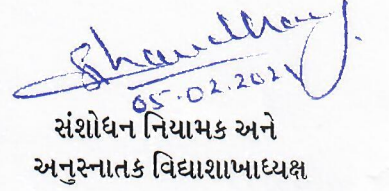 05.02.2021
સંશોધન નિયામક અને
અનુસ્નાતક વિદ્યાશાખાધ્યક્ષ